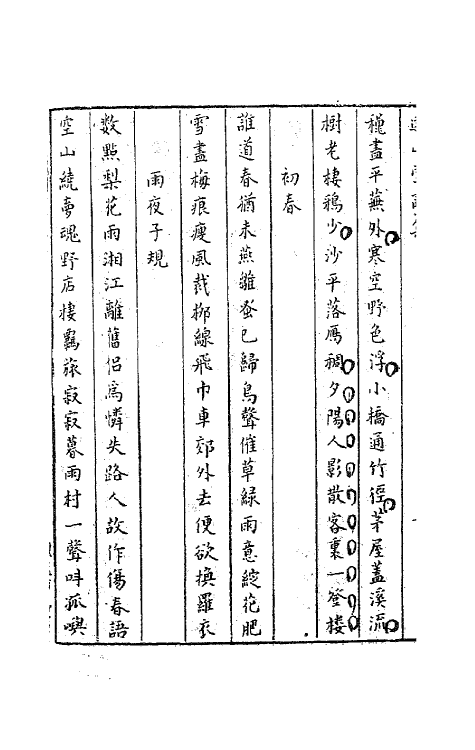 穫盡平蕪外寒空野色浮小橋通竹徑茅屋蓋溪流
樹老棲鴉少沙平落鴈稠夕陽人影散客裏一登樓
初春
誰道春猶未燕雛蚤已歸鳥聲催草綠雨意綻花肥
雪盡梅痕瘦風裁柳線飛巾車郊外去便欲換羅衣
雨夜子規
数點梨花雨湘江離舊侶為憐失路人故作傷春語
空山繞夢魂野店棲羈旅寂寂暮雨村一聲呌孤嶼